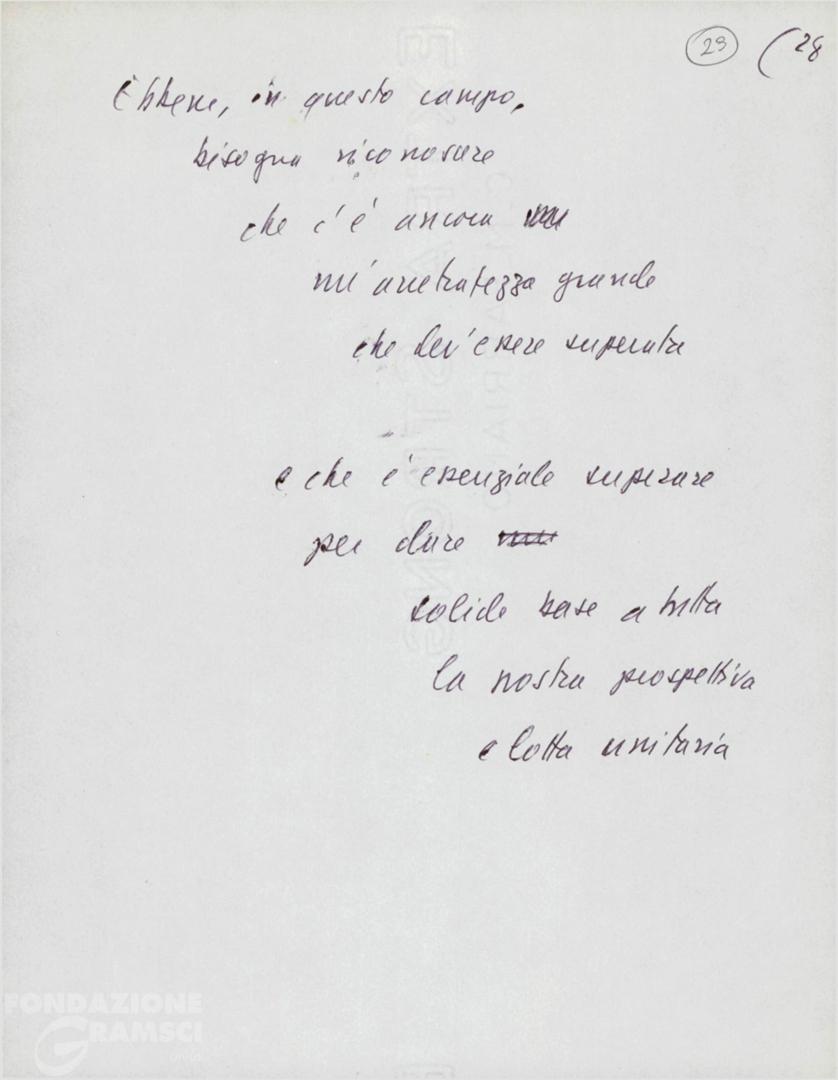 29 (28
Ebbene, in questo campo,
bisogna riconoscere
che c'è ancora
un'arretratezza grande
che dev'essere superata
e che è essenziale superare
per dare
solide base a tutta
la nostra prospettiva
e lotta unitaria
FONDAZIONE
GRAMSCI
onlus